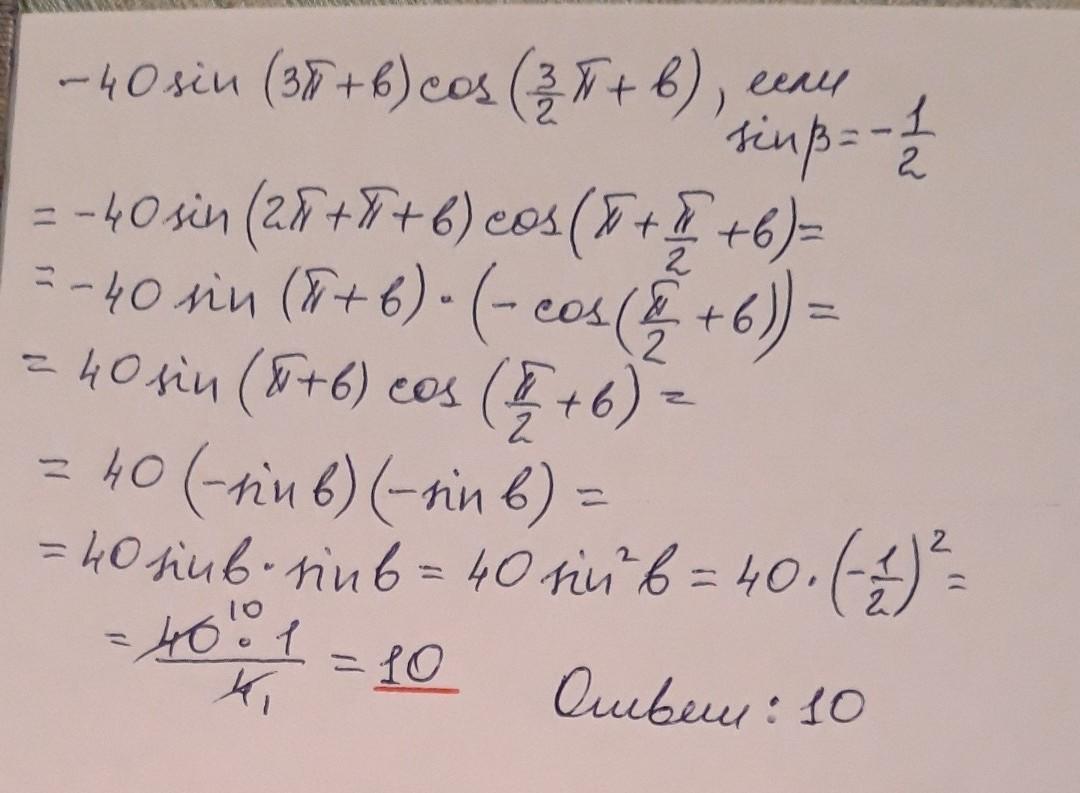 -40 sin (3π+в) cos (3/2 π + в), если
sin β = -1/2
= -40 sin (2π+π+в) cos (π + π/2 + в) =
= -40 sin (π+в) · (- cos (π/2 + в)) =
= 40 sin (π+в) cos (π/2 + в) =
= 40 (-sin в) (-sin в) =
= 40 sin в · sin в = 40 sin² в = 40 · (-1/2)² =
= 40¹⁰ · 1 / 4₁ = 10
Ответ: 10